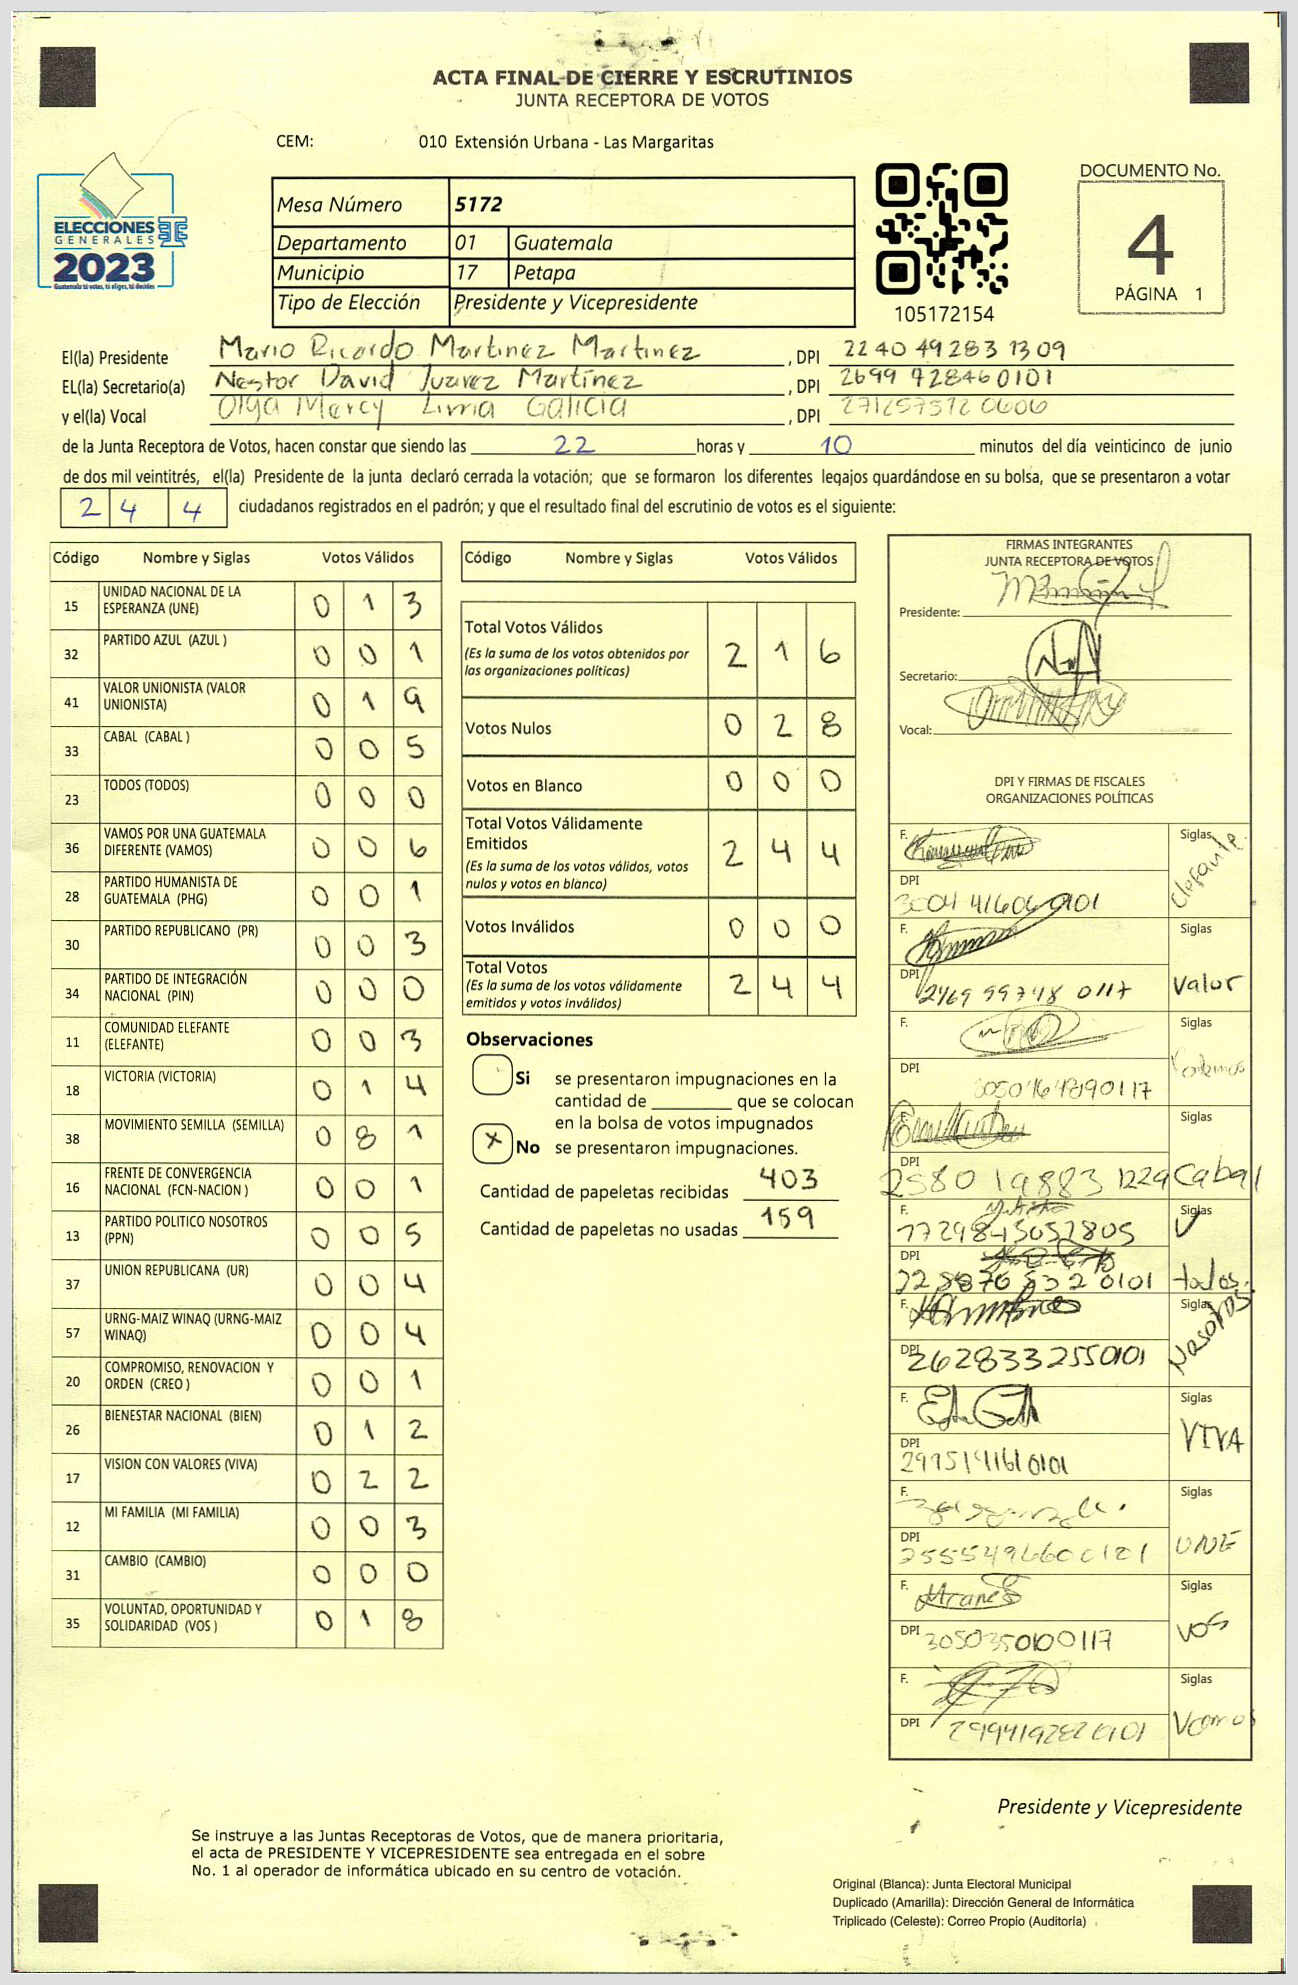 ACTA FINAL DE CIERRE Y ESCRUTINIOS
JUNTA RECEPTORA DE VOTOS
CEM: 010 Extensión Urbana - Las Margaritas
ELECCIONES
GENERALES
2023
Guatemala tú votas, tú eliges, tú decides
Mesa Número 5172
Departamento 01 Guatemala
Municipio 17 Petapa
Tipo de Elección Presidente y Vicepresidente
105172154
DOCUMENTO No.
4
PÁGINA 1
El(la) Presidente Mario Ricardo Martinez Martinez, DPI 2240 49283 1309
EL(la) Secretario(a) Nestor David Juarez Martínez, DPI 2699 72846 0101
y el(la) Vocal Olga Mercy Lima Galicia, DPI 271257512 0606
de la Junta Receptora de Votos, hacen constar que siendo las 22 horas y 10 minutos del día veinticinco de junio
de dos mil veintitrés, el(la) Presidente de la junta declaró cerrada la votación; que se formaron los diferentes legajos guardándose en su bolsa, que se presentaron a votar
2 4 4 ciudadanos registrados en el padrón; y que el resultado final del escrutinio de votos es el siguiente:
Código Nombre y Siglas Votos Válidos
15 UNIDAD NACIONAL DE LA ESPERANZA (UNE) 0 1 3
32 PARTIDO AZUL (AZUL ) 0 0 1
41 VALOR UNIONISTA (VALOR UNIONISTA) 0 1 9
33 CABAL (CABAL ) 0 0 5
23 TODOS (TODOS) 0 0 0
36 VAMOS POR UNA GUATEMALA DIFERENTE (VAMOS) 0 0 6
28 PARTIDO HUMANISTA DE GUATEMALA (PHG) 0 0 1
30 PARTIDO REPUBLICANO (PR) 0 0 3
34 PARTIDO DE INTEGRACIÓN NACIONAL (PIN) 0 0 0
11 COMUNIDAD ELEFANTE (ELEFANTE) 0 0 3
18 VICTORIA (VICTORIA) 0 1 4
38 MOVIMIENTO SEMILLA (SEMILLA) 0 8 1
16 FRENTE DE CONVERGENCIA NACIONAL (FCN-NACION ) 0 0 1
13 PARTIDO POLITICO NOSOTROS (PPN) 0 0 5
37 UNION REPUBLICANA (UR) 0 0 4
57 URNG-MAIZ WINAQ (URNG-MAIZ WINAQ) 0 0 4
20 COMPROMISO, RENOVACION Y ORDEN (CREO ) 0 0 1
26 BIENESTAR NACIONAL (BIEN) 0 1 2
17 VISION CON VALORES (VIVA) 0 2 2
12 MI FAMILIA (MI FAMILIA) 0 0 3
31 CAMBIO (CAMBIO) 0 0 0
35 VOLUNTAD, OPORTUNIDAD Y SOLIDARIDAD (VOS ) 0 1 8
Código Nombre y Siglas Votos Válidos
Total Votos Válidos 2 1 6
(Es la suma de los votos obtenidos por
las organizaciones políticas)
Votos Nulos 0 2 8
Votos en Blanco 0 0 0
Total Votos Válidamente
Emitidos 2 4 4
(Es la suma de los votos válidos, votos
nulos y votos en blanco)
Votos Inválidos 0 0 0
Total Votos 2 4 4
(Es la suma de los votos válidamente
emitidos y votos inválidos)
Observaciones
Si se presentaron impugnaciones en la
cantidad de ________ que se colocan
en la bolsa de votos impugnados
X No se presentaron impugnaciones.
Cantidad de papeletas recibidas 403
Cantidad de papeletas no usadas 159
FIRMAS INTEGRANTES
JUNTA RECEPTORA DE VOTOS
Presidente:
Secretario:
Vocal:
DPI Y FIRMAS DE FISCALES
ORGANIZACIONES POLÍTICAS
F. Siglas Elefante
DPI 3004 41606 0101
F. Siglas Valor
DPI 2469 99748 0117
F. Siglas
DPI
F. Siglas Cabal
DPI 2580 19883 1229
F. Siglas
DPI todos
F. Siglas Nosotros
DPI 2628332550101
F. Siglas VIVA
DPI
F. Siglas UNE
DPI
F. Siglas VOS
DPI 3050350100117
F. Siglas Vamos
DPI
Presidente y Vicepresidente
Se instruye a las Juntas Receptoras de Votos, que de manera prioritaria,
el acta de PRESIDENTE Y VICEPRESIDENTE sea entregada en el sobre
No. 1 al operador de informática ubicado en su centro de votación.
Original (Blanca): Junta Electoral Municipal
Duplicado (Amarilla): Dirección General de Informática
Triplicado (Celeste): Correo Propio (Auditoría)